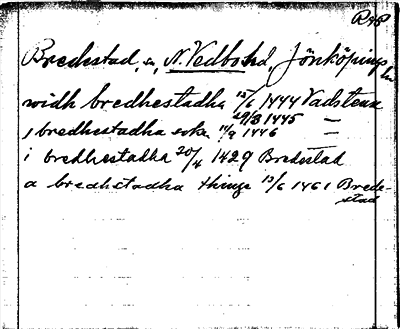 Bredestad, sn, N. Vedbo hd, Jönköpings ln
widh bredhestadha 15/6 1444 Vadstena
29/3 1445 —
i bredhestadha sokn 14/9 1446 —
i bredhestadha 20/4 1429 Bredestad
a bredhstadha thinge 13/6 1461 Brede-
stad